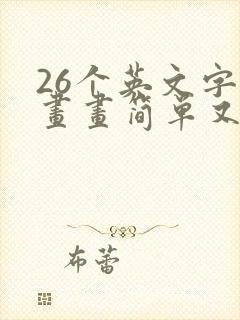 26个英文字
畫畫简单又
布蕾